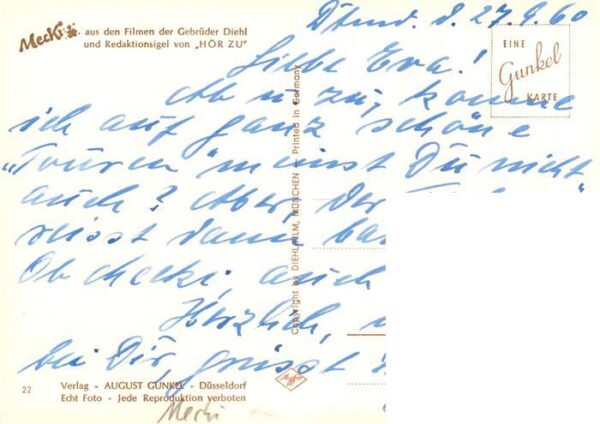 Mecki
aus den Filmen der Gebrüder Diehl
und Redaktionsigel von „HÖR ZU"
Dtmd. d. 27.9.60
EINE
Gunkel
KARTE
Liebe Eva!
Ab u. zu, komme
ich auf ganz schöne
„Touren" meinst Du nicht
auch? Aber, der
reisst dann
Ob checki, auch
Herzlich,
bei Dir, grüsst
Copyright by DIEHLFILM, MÜNCHEN Printed in Germany
22
Verlag - AUGUST GUNKEL - Düsseldorf
Echt Foto - Jede Reproduktion verboten
Mecki